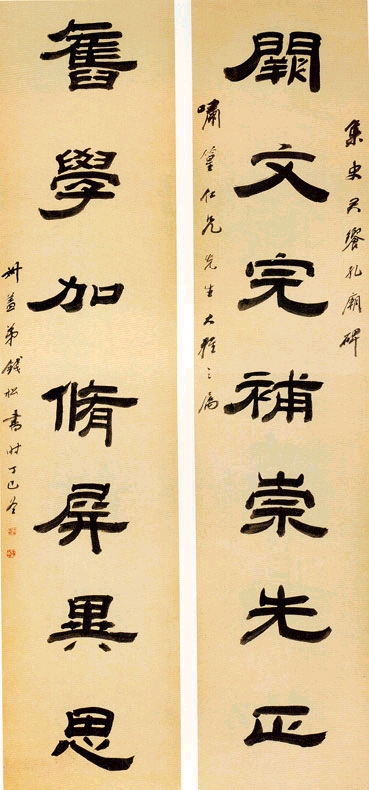 集史君饗孔廟碑
闕文完補崇先正
嘯篁仁兄先生大雅之屬
舊學加脩屏異思
尗盖弟錢松書時丁巳